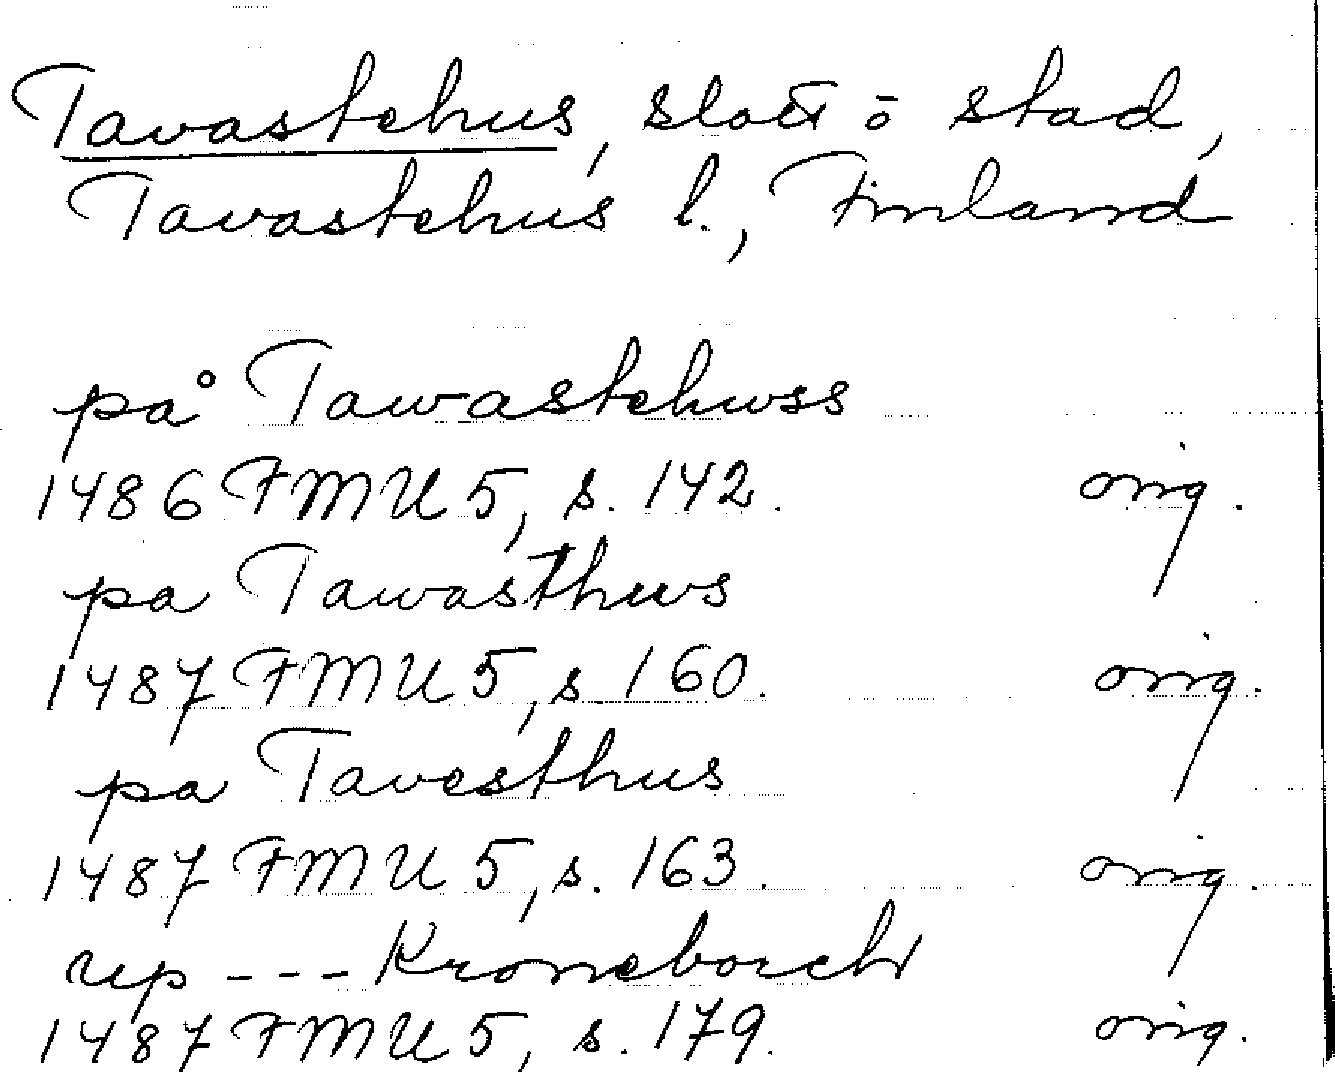 Tavastehus, slott o stad,
Tavastehus l., Finland
på Tawastehwss
1486 FMU 5, s. 142. orig.
pa Tawasthws
1487 FMU 5, s. 160. orig.
pa Tavesthus
1487 FMU 5, s. 163. orig.
up --- Kroneborch
1487 FMU 5, s. 179. orig.